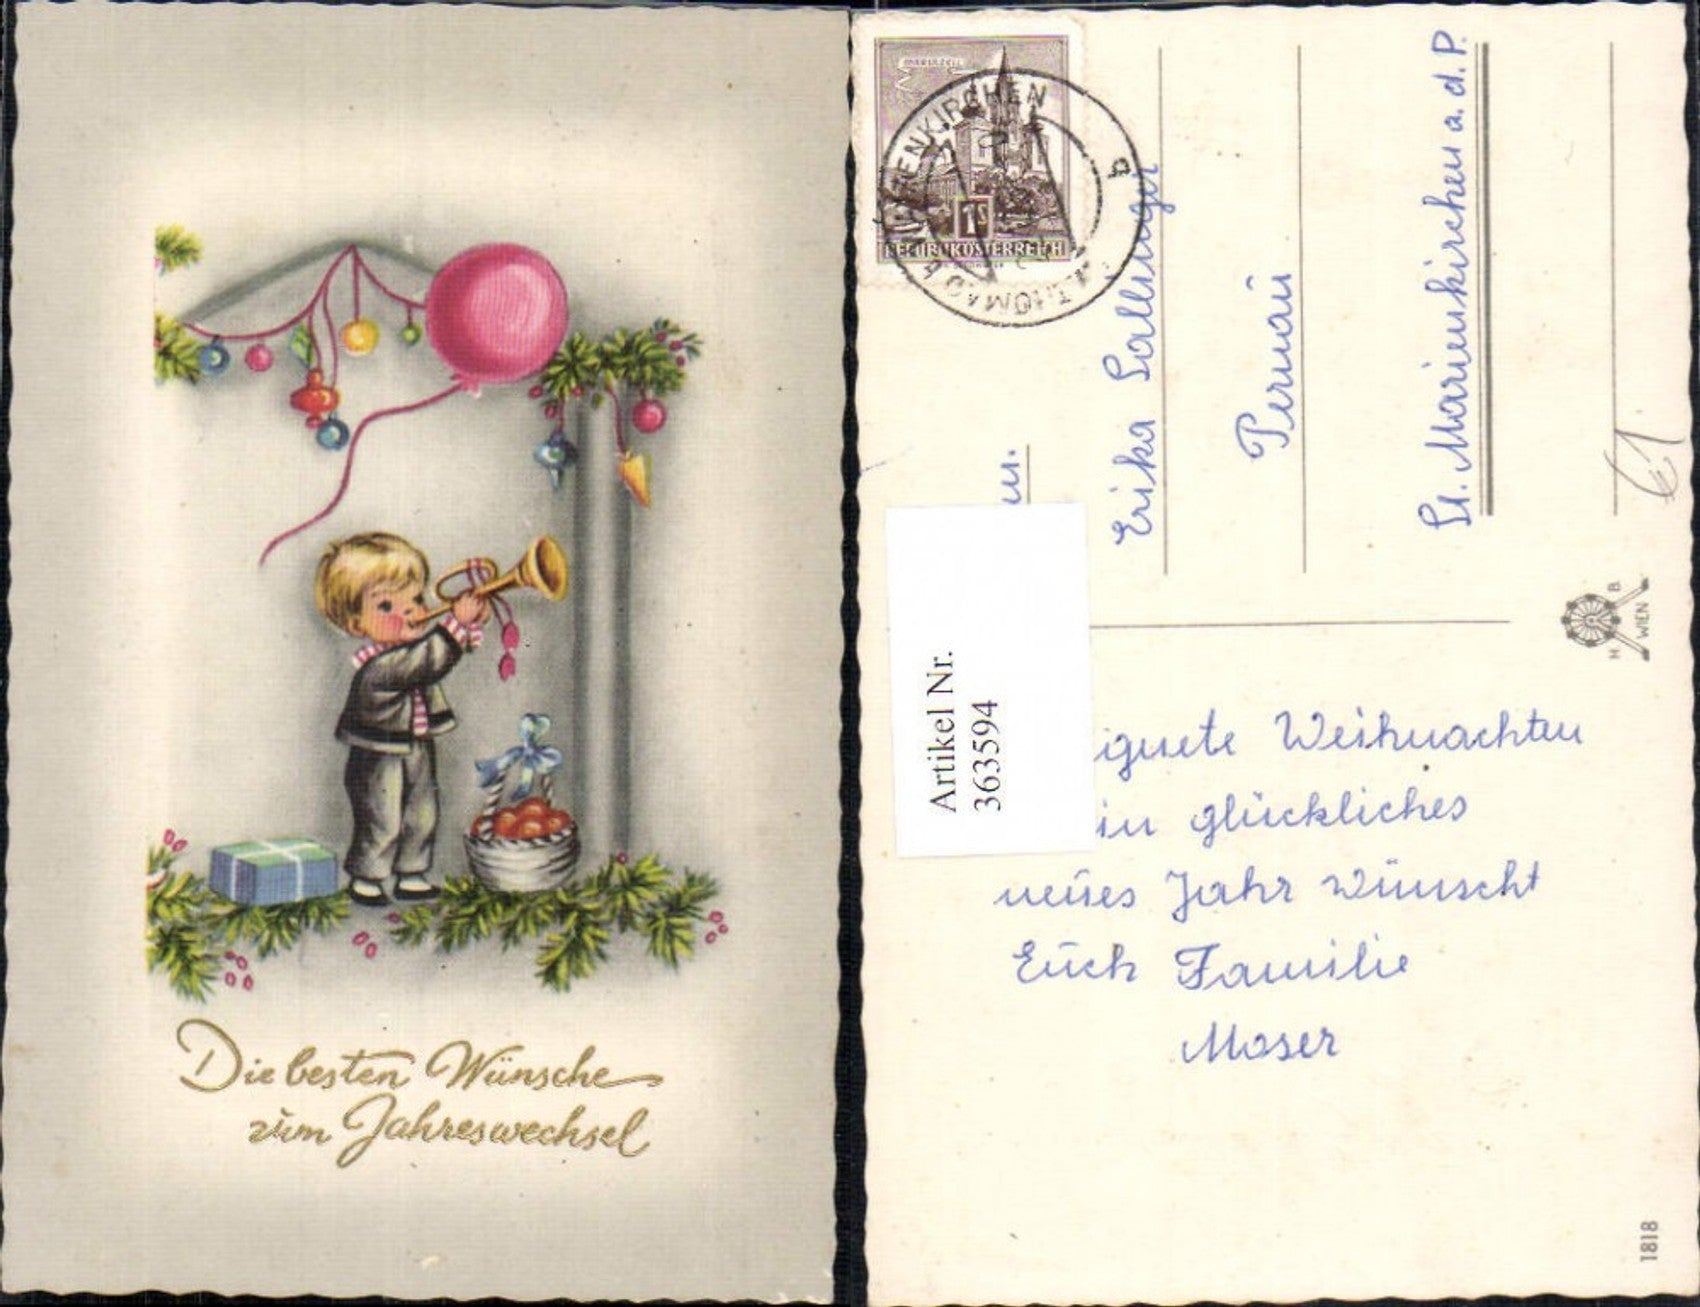 Die besten Wünsche
zum Jahreswechsel
MARIAZELL
1S
REPUBLIK ÖSTERREICH
b
un.
Erika Sallinger
Pernau
St. Marienkirchen a. d. P.
€1
H. B. WIEN
Artikel Nr.
363594
ignete Weihnachten
in glückliches
neues Jahr wünscht
Euch Familie
Moser
1818